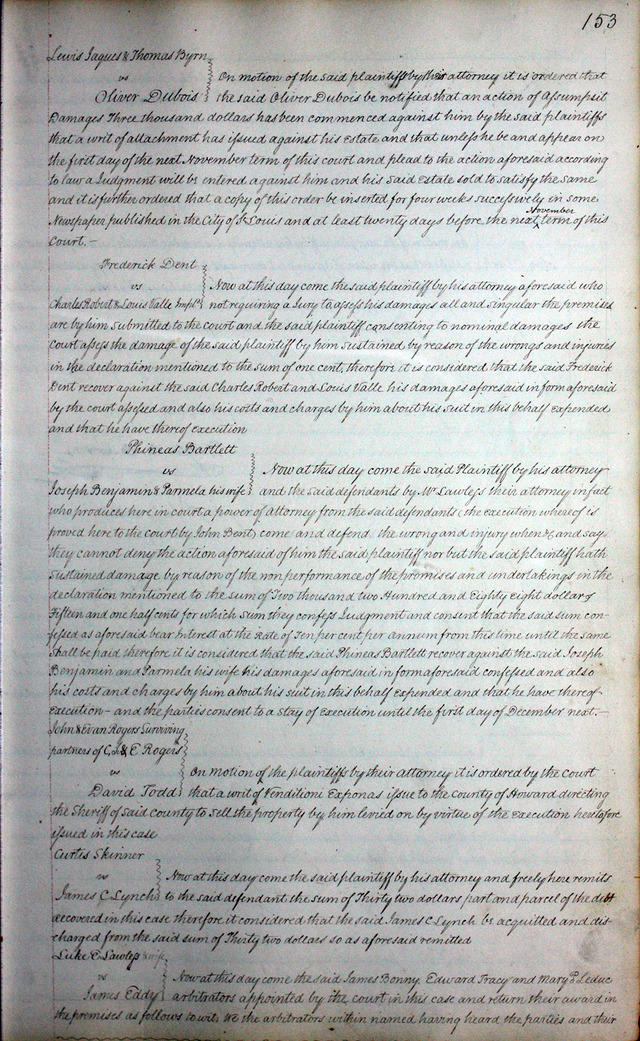 153
Lewis Jaques & Thomas Byrn
vs On motion of the said plaintiffs by their attorney it is ordered that
Oliver Dubois the said Oliver Dubois be notified that an action of Assumpsit
Damages Three thousand dollars has been commenced against him by the said plaintiffs
that a writ of attachment has issued against his Estate and that unless he be and appear on
the first day of the next November term of this court and plead to the action aforesaid according
to law a Judgment will be entered against him and his said Estate sold to satisfy the same
and it is further ordered that a copy of this order be inserted for four weeks successively in some
Newspaper published in the City of St Louis and at least twenty days before the next November term of this
Court.—
Frederick Dent
vs Now at this day come the said plaintiff by his attorney aforesaid who
Charles Robert & Louis Valle Impld not requiring a Jury to assess his damages all and singular the premises
are by him submitted to the court and the said plaintiff consenting to nominal damages the
court assess the damage of the said plaintiff by him sustained by reason of the wrongs and injuries
in the declaration mentioned to the sum of one cent, therefore it is considered that the said Frederick
Dent recover against the said Charles Robert and Louis Valle his damages aforesaid in form aforesaid
by the court assessed and also his costs and charges by him about his suit in this behalf expended
and that he have thereof execution
Phineas Bartlett
vs Now at this day come the said Plaintiff by his attorney
Joseph Benjamin & Parmela his wife and the said defendants by Mr Lawless their attorney in fact
who produces here in court a power of attorney from the said defendants (the execution whereof is
proved here to the court by John Bent) come and defend the wrong and injury when &c and says
they cannot deny the action aforesaid of him the said plaintiff nor but the said plaintiff hath
sustained damage by reason of the non performance of the promises and undertakings in the
declaration mentioned to the sum of Two thousand two Hundred and Eighty eight dollars
Fifteen and one half cents for which sum they confess Judgment and consent that the said sum con-
fessed as aforesaid bear Interest at the Rate of Ten per cent per annum from this time until the same
shall be paid therefore it is considered that the said Phineas Bartlett recover against the said Joseph
Benjamin and Parmela his wife his damages aforesaid in form aforesaid confessed and also
his costs and charges by him about his suit in this behalf expended and that he have thereof
execution — and the parties consent to a stay of execution until the first day of December next.—
John & Evan Rogers Surviving
partners of C, J & E Rogers
vs On motion of the plaintiffs by their attorney it is ordered by the court
David Todd that a writ of Venditioni Exponas issue to the County of Howard directing
the Sheriff of said county to sell the property by him levied on by virtue of the execution heretofore
issued in this case
Curtis Skinner
vs Now at this day come the said plaintiff by his attorney and freely here remits
James C Lynch to the said defendant the sum of Thirty two dollars part and parcel of the debt
recovered in this case therefore it considered that the said James C Lynch be acquitted and dis-
charged from the said sum of Thirty two dollars so as aforesaid remitted
Luke E Lawless & wife
vs Now at this day come the said James Bonny, Edward Tracy and Mary P Leduc
James Eddy arbitrators appointed by the court in this case and return their award in
the premises as follows to wit, We the arbitrators within named having heard the parties and their